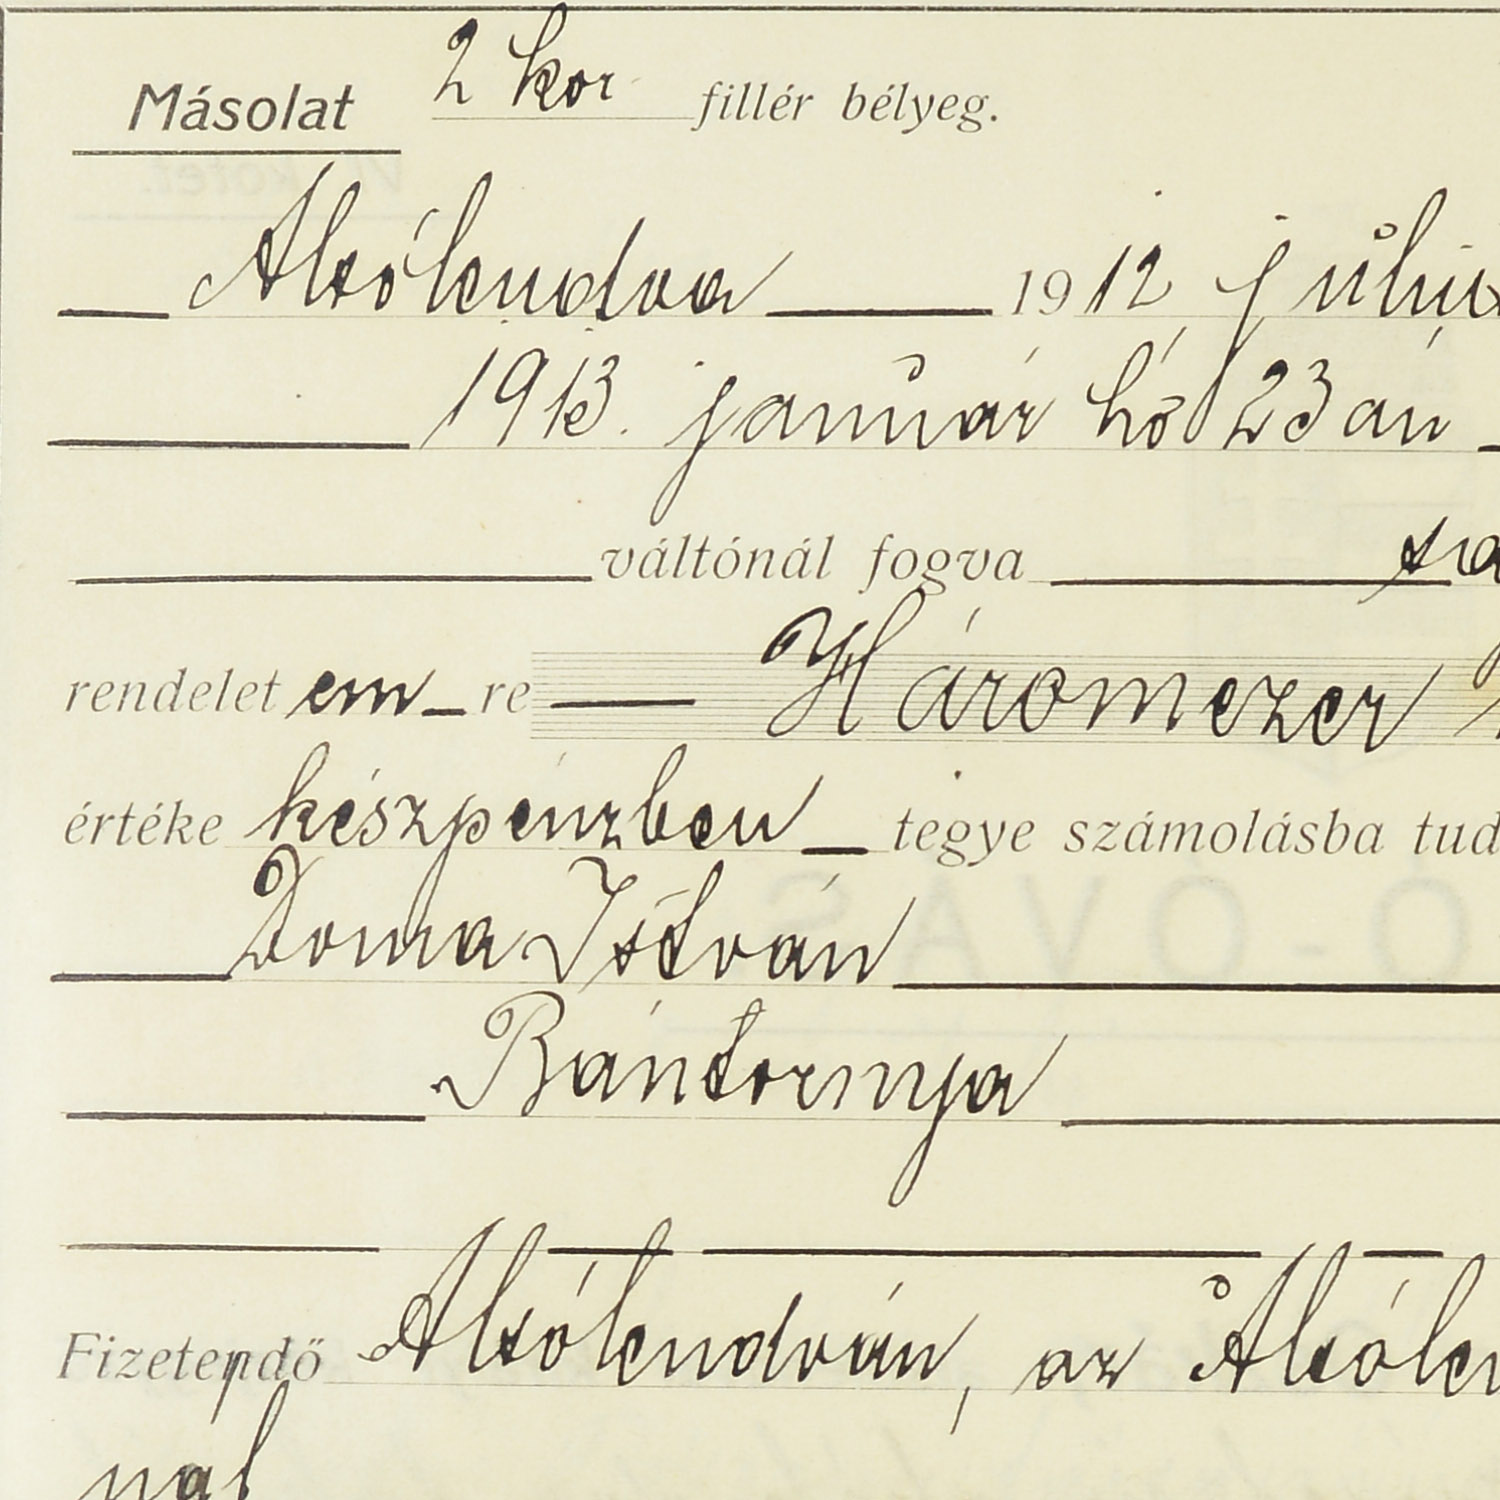 Másolat 2 kor fillér bélyeg.
Alsólendva 1912 július
1913. január hó 23án
váltónál fogva sa
rendelet em re Háromezer
értéke készpénzben tegye számolásba tud
Doma István
Bántornya
Fizetendő Alsólendván, az Alsólen
nál